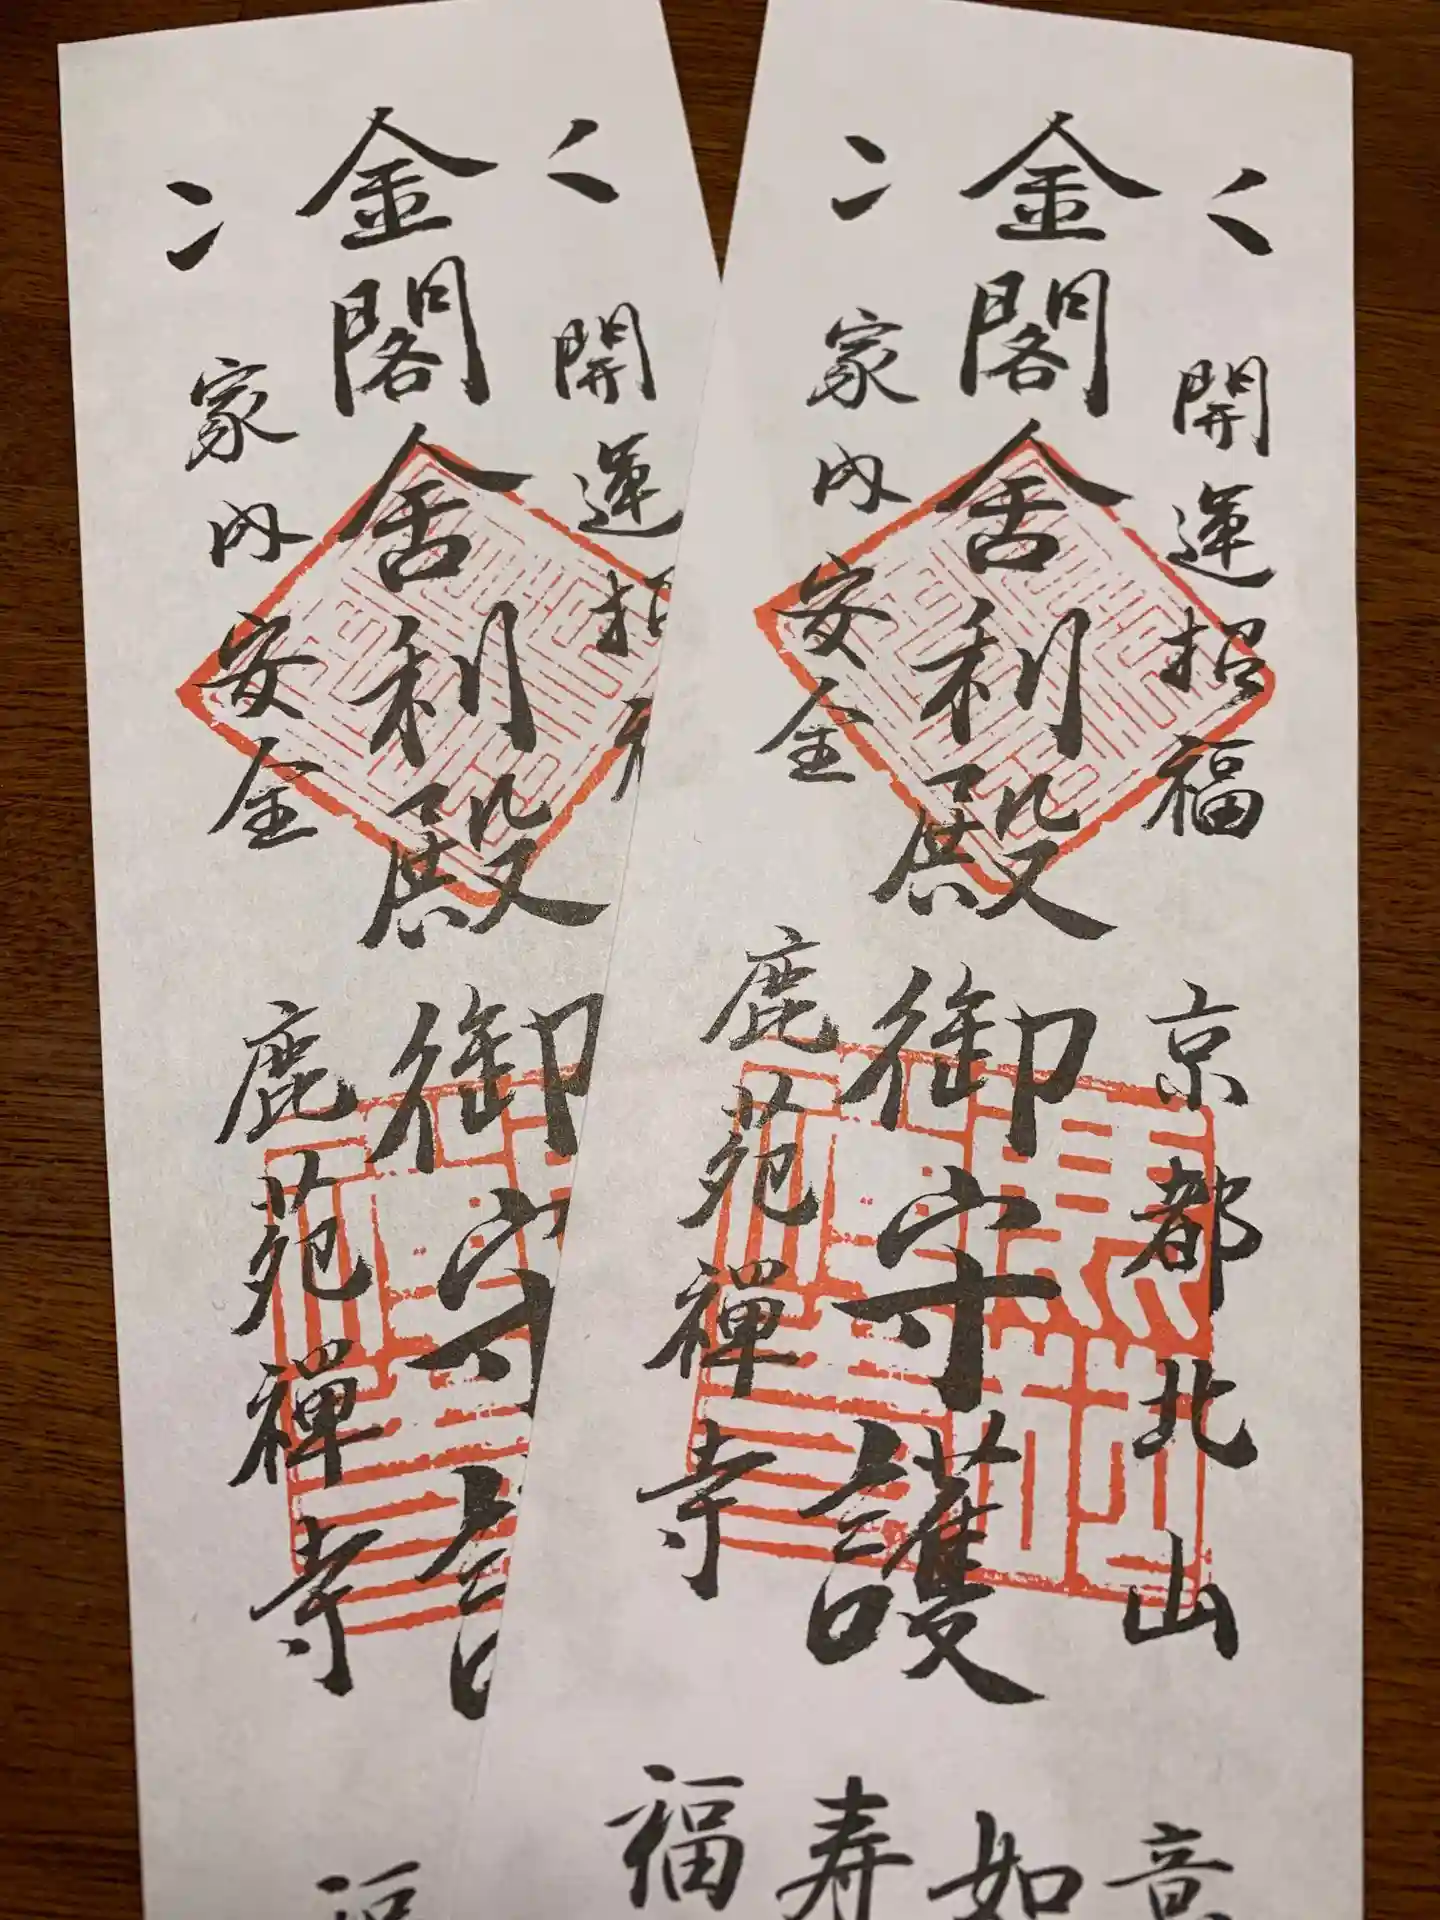 開運招福
京都北山
金閣舎利殿御守護
家内安全
鹿苑禅寺
意
如
寿
福
開運招
金閣舎利殿御守
家内安全
鹿苑禅寺